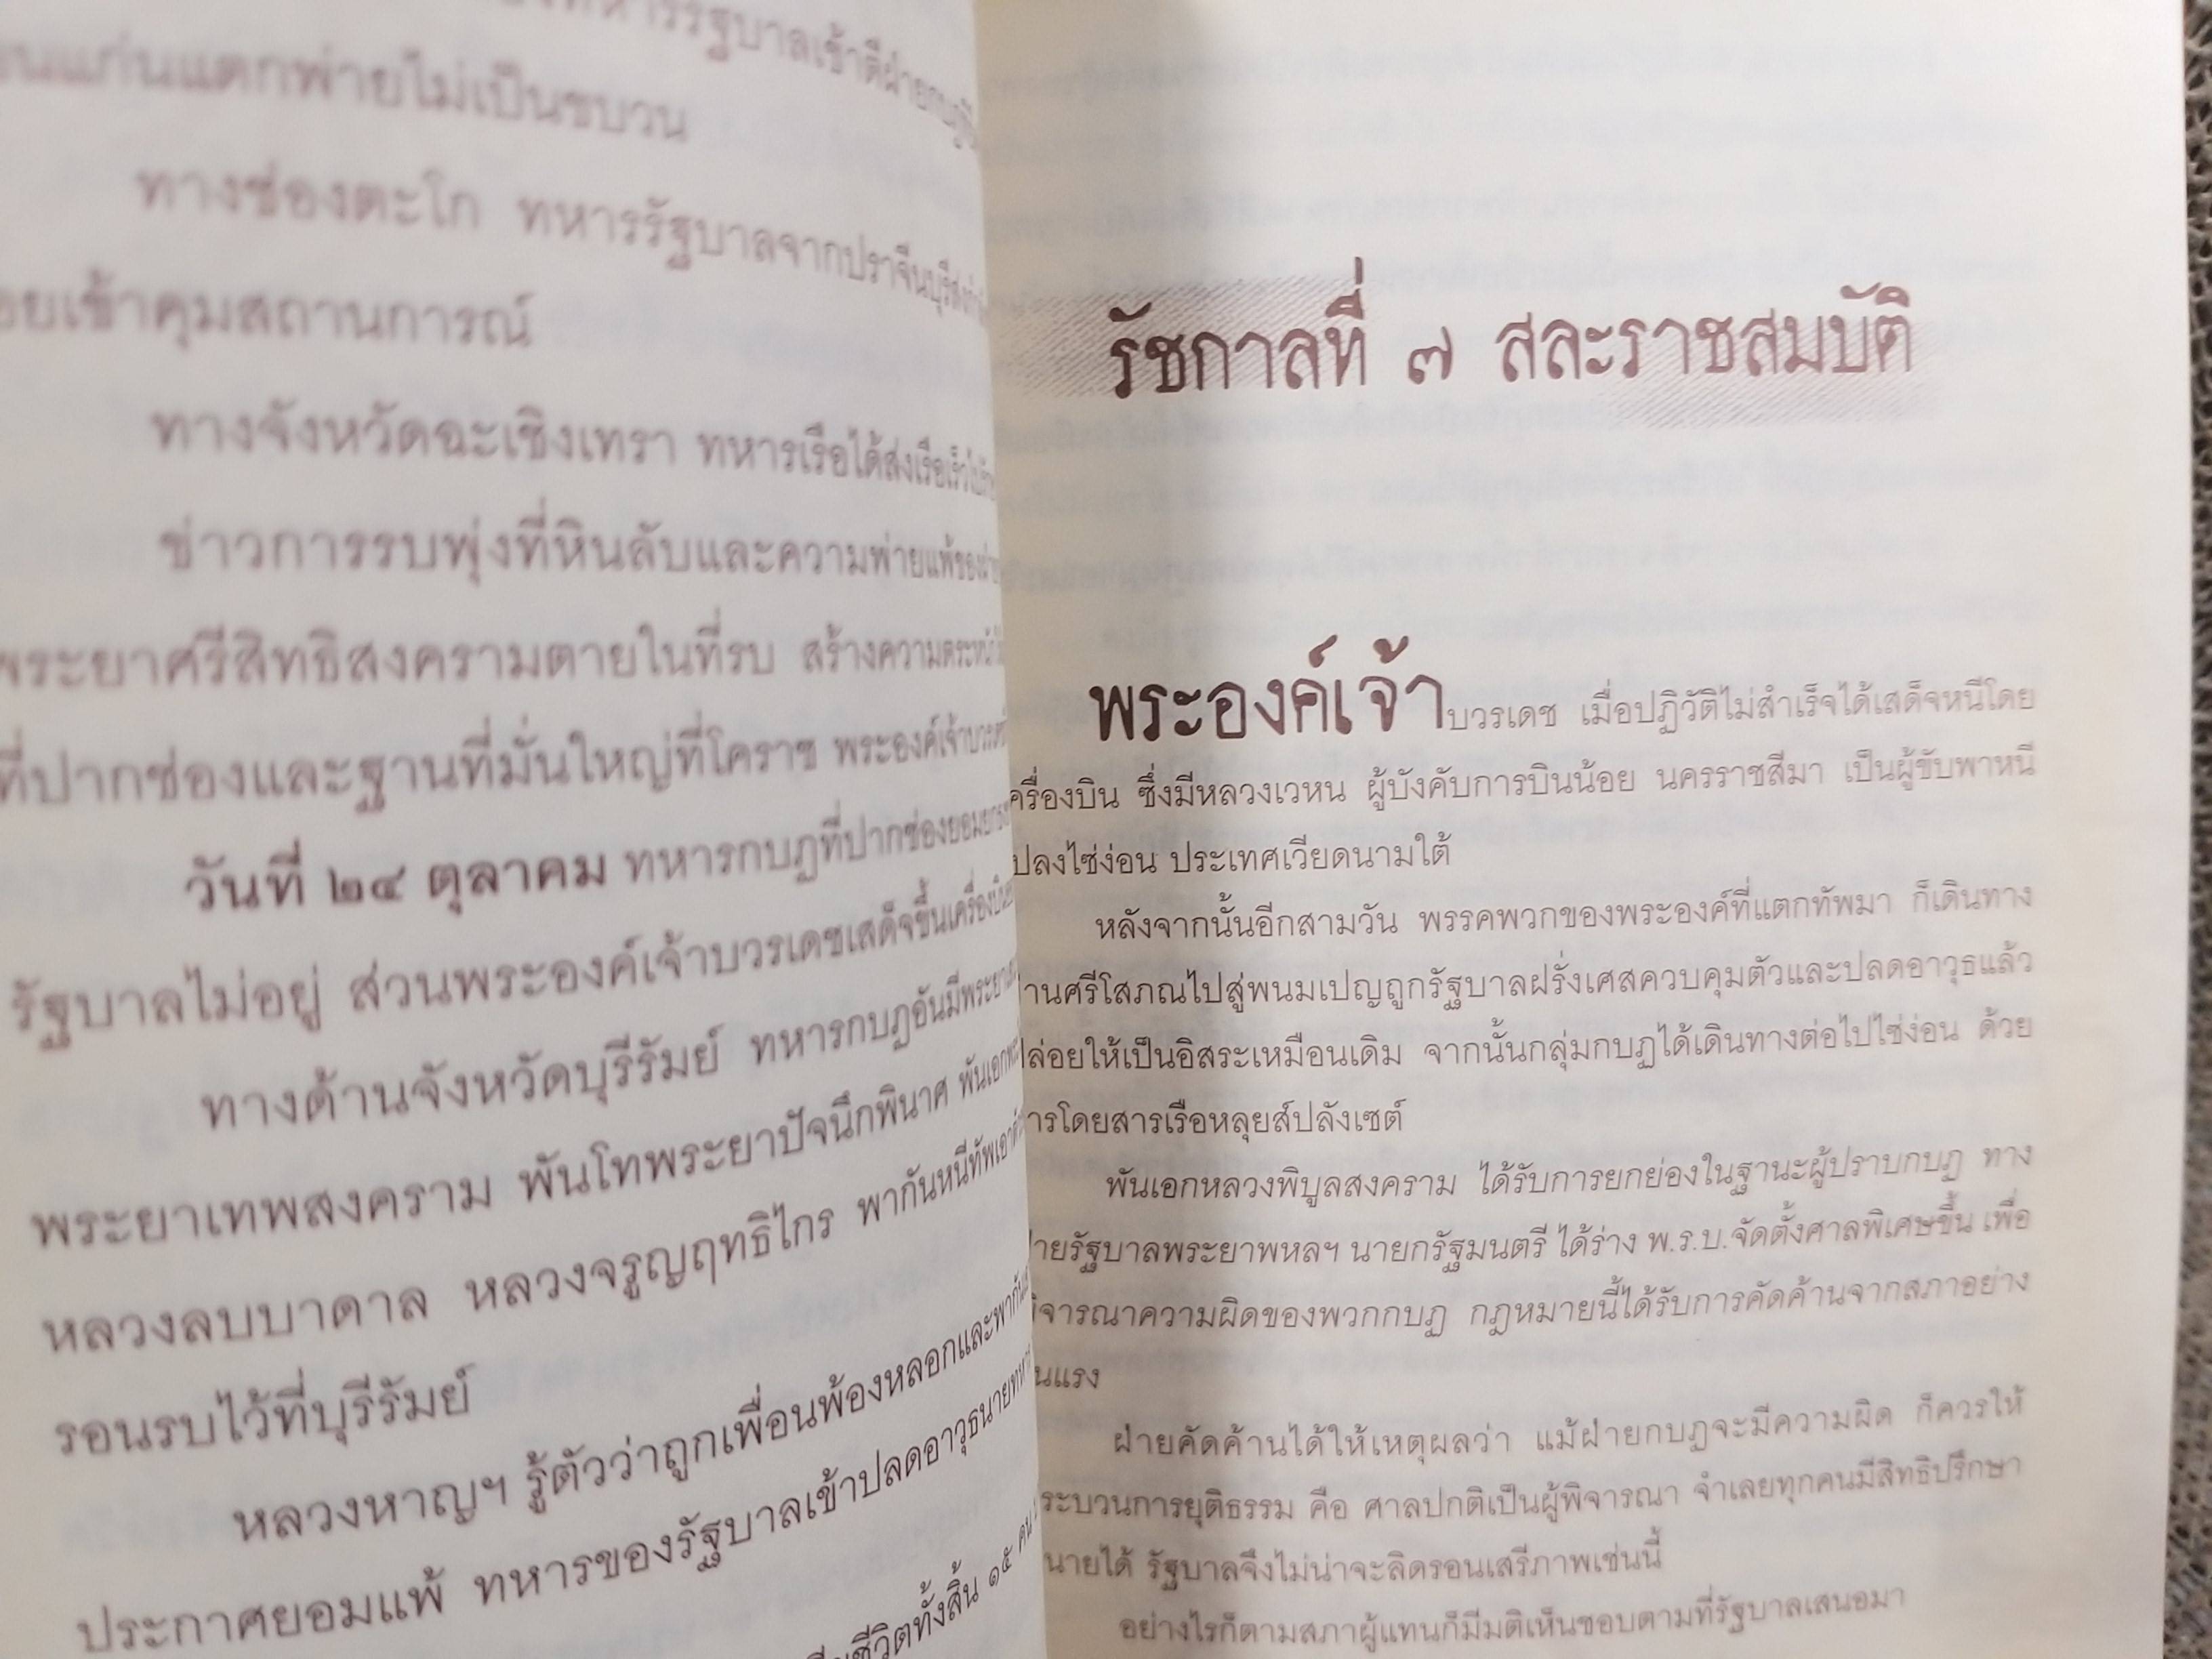 ทหารรัฐบาลเข้าตีฝ่ายกบฏที่
นแก่นแตกพ่ายไม่เป็นขบวน
ทางช่องตะโก ทหารรัฐบาลจากปราจีนบุรี
อยเข้าคุมสถานการณ์
ทางจังหวัดฉะเชิงเทรา ทหารเรือได้ส่งเรือเร็ว
ข่าวการรบพุ่งที่หินลับและความพ่ายแพ้ของ
พระยาศรีสิทธิสงครามตายในที่รบ สร้างความตระหนก
ที่ปากช่องและฐานที่มั่นใหญ่ที่โคราช พระองค์เจ้าบวรเดช
วันที่ ๒๔ ตุลาคม ทหารกบฏที่ปากช่องยอม
รัฐบาลไม่อยู่ ส่วนพระองค์เจ้าบวรเดชเสด็จขึ้นเครื่องบิน
ทางด้านจังหวัดบุรีรัมย์ ทหารกบฏอันมีพระยา
พระยาเทพสงคราม พันโทพระยาปัจนึกพินาศ พันเอก
หลวงลบบาดาล หลวงจรูญฤทธิไกร พากันหนีทัพเอา
รอนรบไว้ที่บุรีรัมย์
หลวงหาญฯ รู้ตัวว่าถูกเพื่อนพ้องหลอกและพากัน
ประกาศยอมแพ้ ทหารของรัฐบาลเข้าปลดอาวุธนายทหาร
ชีวิตทั้งสิ้น ๑๕ คน
รัชกาลที่ ๗ สละราชสมบัติ
พระองค์เจ้าบวรเดช เมื่อปฏิวัติไม่สำเร็จได้เสด็จหนีโดย
ครื่องบิน ซึ่งมีหลวงเวหน ผู้บังคับการบินน้อย นครราชสีมา เป็นผู้ขับพาหนี
ปลงไซ่ง่อน ประเทศเวียดนามใต้
หลังจากนั้นอีกสามวัน พรรคพวกของพระองค์ที่แตกทัพมา ก็เดินทาง
านศรีโสภณไปสู่พนมเปญถูกรัฐบาลฝรั่งเศสควบคุมตัวและปลดอาวุธแล้ว
ล่อยให้เป็นอิสระเหมือนเดิม จากนั้นกลุ่มกบฏได้เดินทางต่อไปไซ่ง่อน ด้วย
ารโดยสารเรือหลุยส์ปลังเซต์
พันเอกหลวงพิบูลสงคราม ได้รับการยกย่องในฐานะผู้ปราบกบฏ ทาง
ายรัฐบาลพระยาพหลฯ นายกรัฐมนตรี ได้ร่าง พ.ร.บ.จัดตั้งศาลพิเศษขึ้น เพื่อ
ิจารณาความผิดของพวกกบฏ กฎหมายนี้ได้รับการคัดค้านจากสภาอย่าง
นแรง
ฝ่ายคัดค้านได้ให้เหตุผลว่า แม้ฝ่ายกบฏจะมีความผิด ก็ควรให้
ระบวนการยุติธรรม คือ ศาลปกติเป็นผู้พิจารณา จำเลยทุกคนมีสิทธิปรึกษา
นายได้ รัฐบาลจึงไม่น่าจะลิดรอนเสรีภาพเช่นนี้
อย่างไรก็ตามสภาผู้แทนก็มีมติเห็นชอบตามที่รัฐบาลเสนอมา